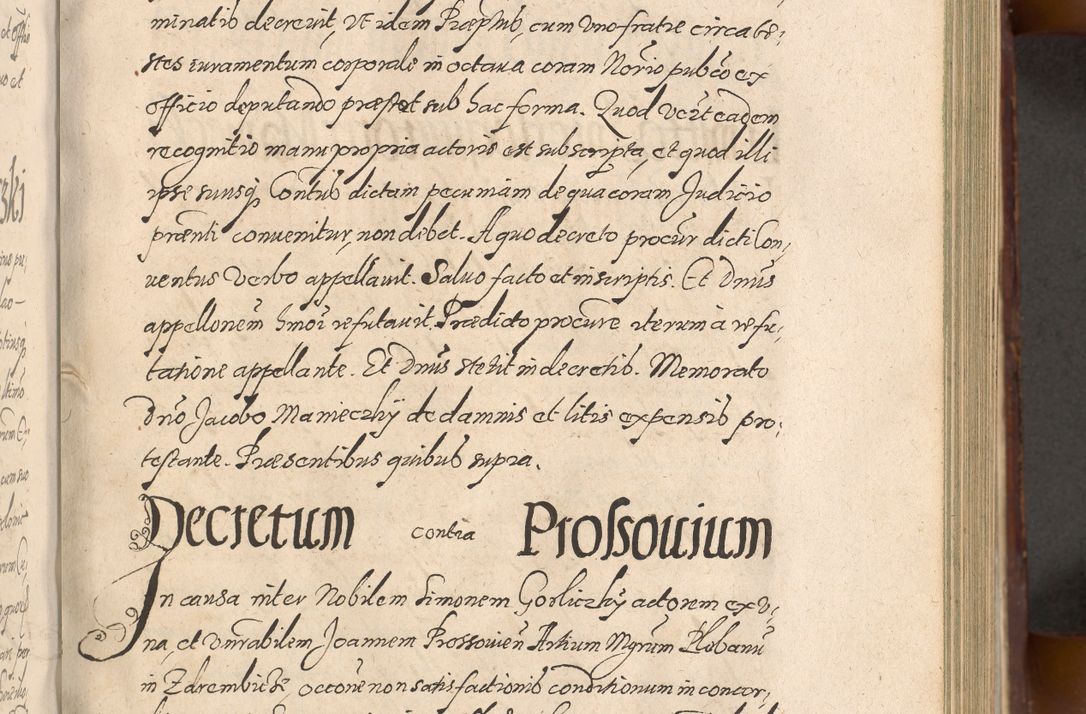 minatio decrevit, Vt idem Præptus, cum Uno fratre circa te,
stes iuramentum corporale in octava coram Norio pubco ex
officio deputando præstet sub hac forma. Quod Vert eadem
recognitio manu propria actoris est subscripta, et quod illi
ipse suusq Contus dictam pecuniam de qua coram Judicio
prænti convenitur, non debet. A quo decreto procur dicti Con,
ventus Verbo appellavit. Salvo facto et in scriptis. Et Dnus
appellonem hmoi refutavit. Prædicto procure iterum à refu,
tatione appellante. Et Dnus stetit in decretis. Memorato
Dno Jacobo Manieczkÿ de damnis et litis expensis pro,
testante. Præsentibus quibus supra.
Decretum contra Prossovium
In causa inter Nobilem Simonem Gorliczkÿ actorem ex V,
na, et Vnrabilem Joannem Prossovien Artium Mgrum Plebanu
in Zdrembicze, occone non satisfactionis conditionum in concor,